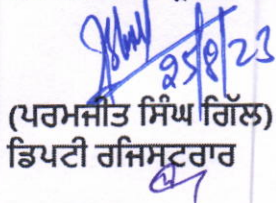 25/8/23
(ਪਰਮਜੀਤ ਸਿੰਘ ਗਿੱਲ)
ਡਿਪਟੀ ਰਜਿਸਟਰਾਰ